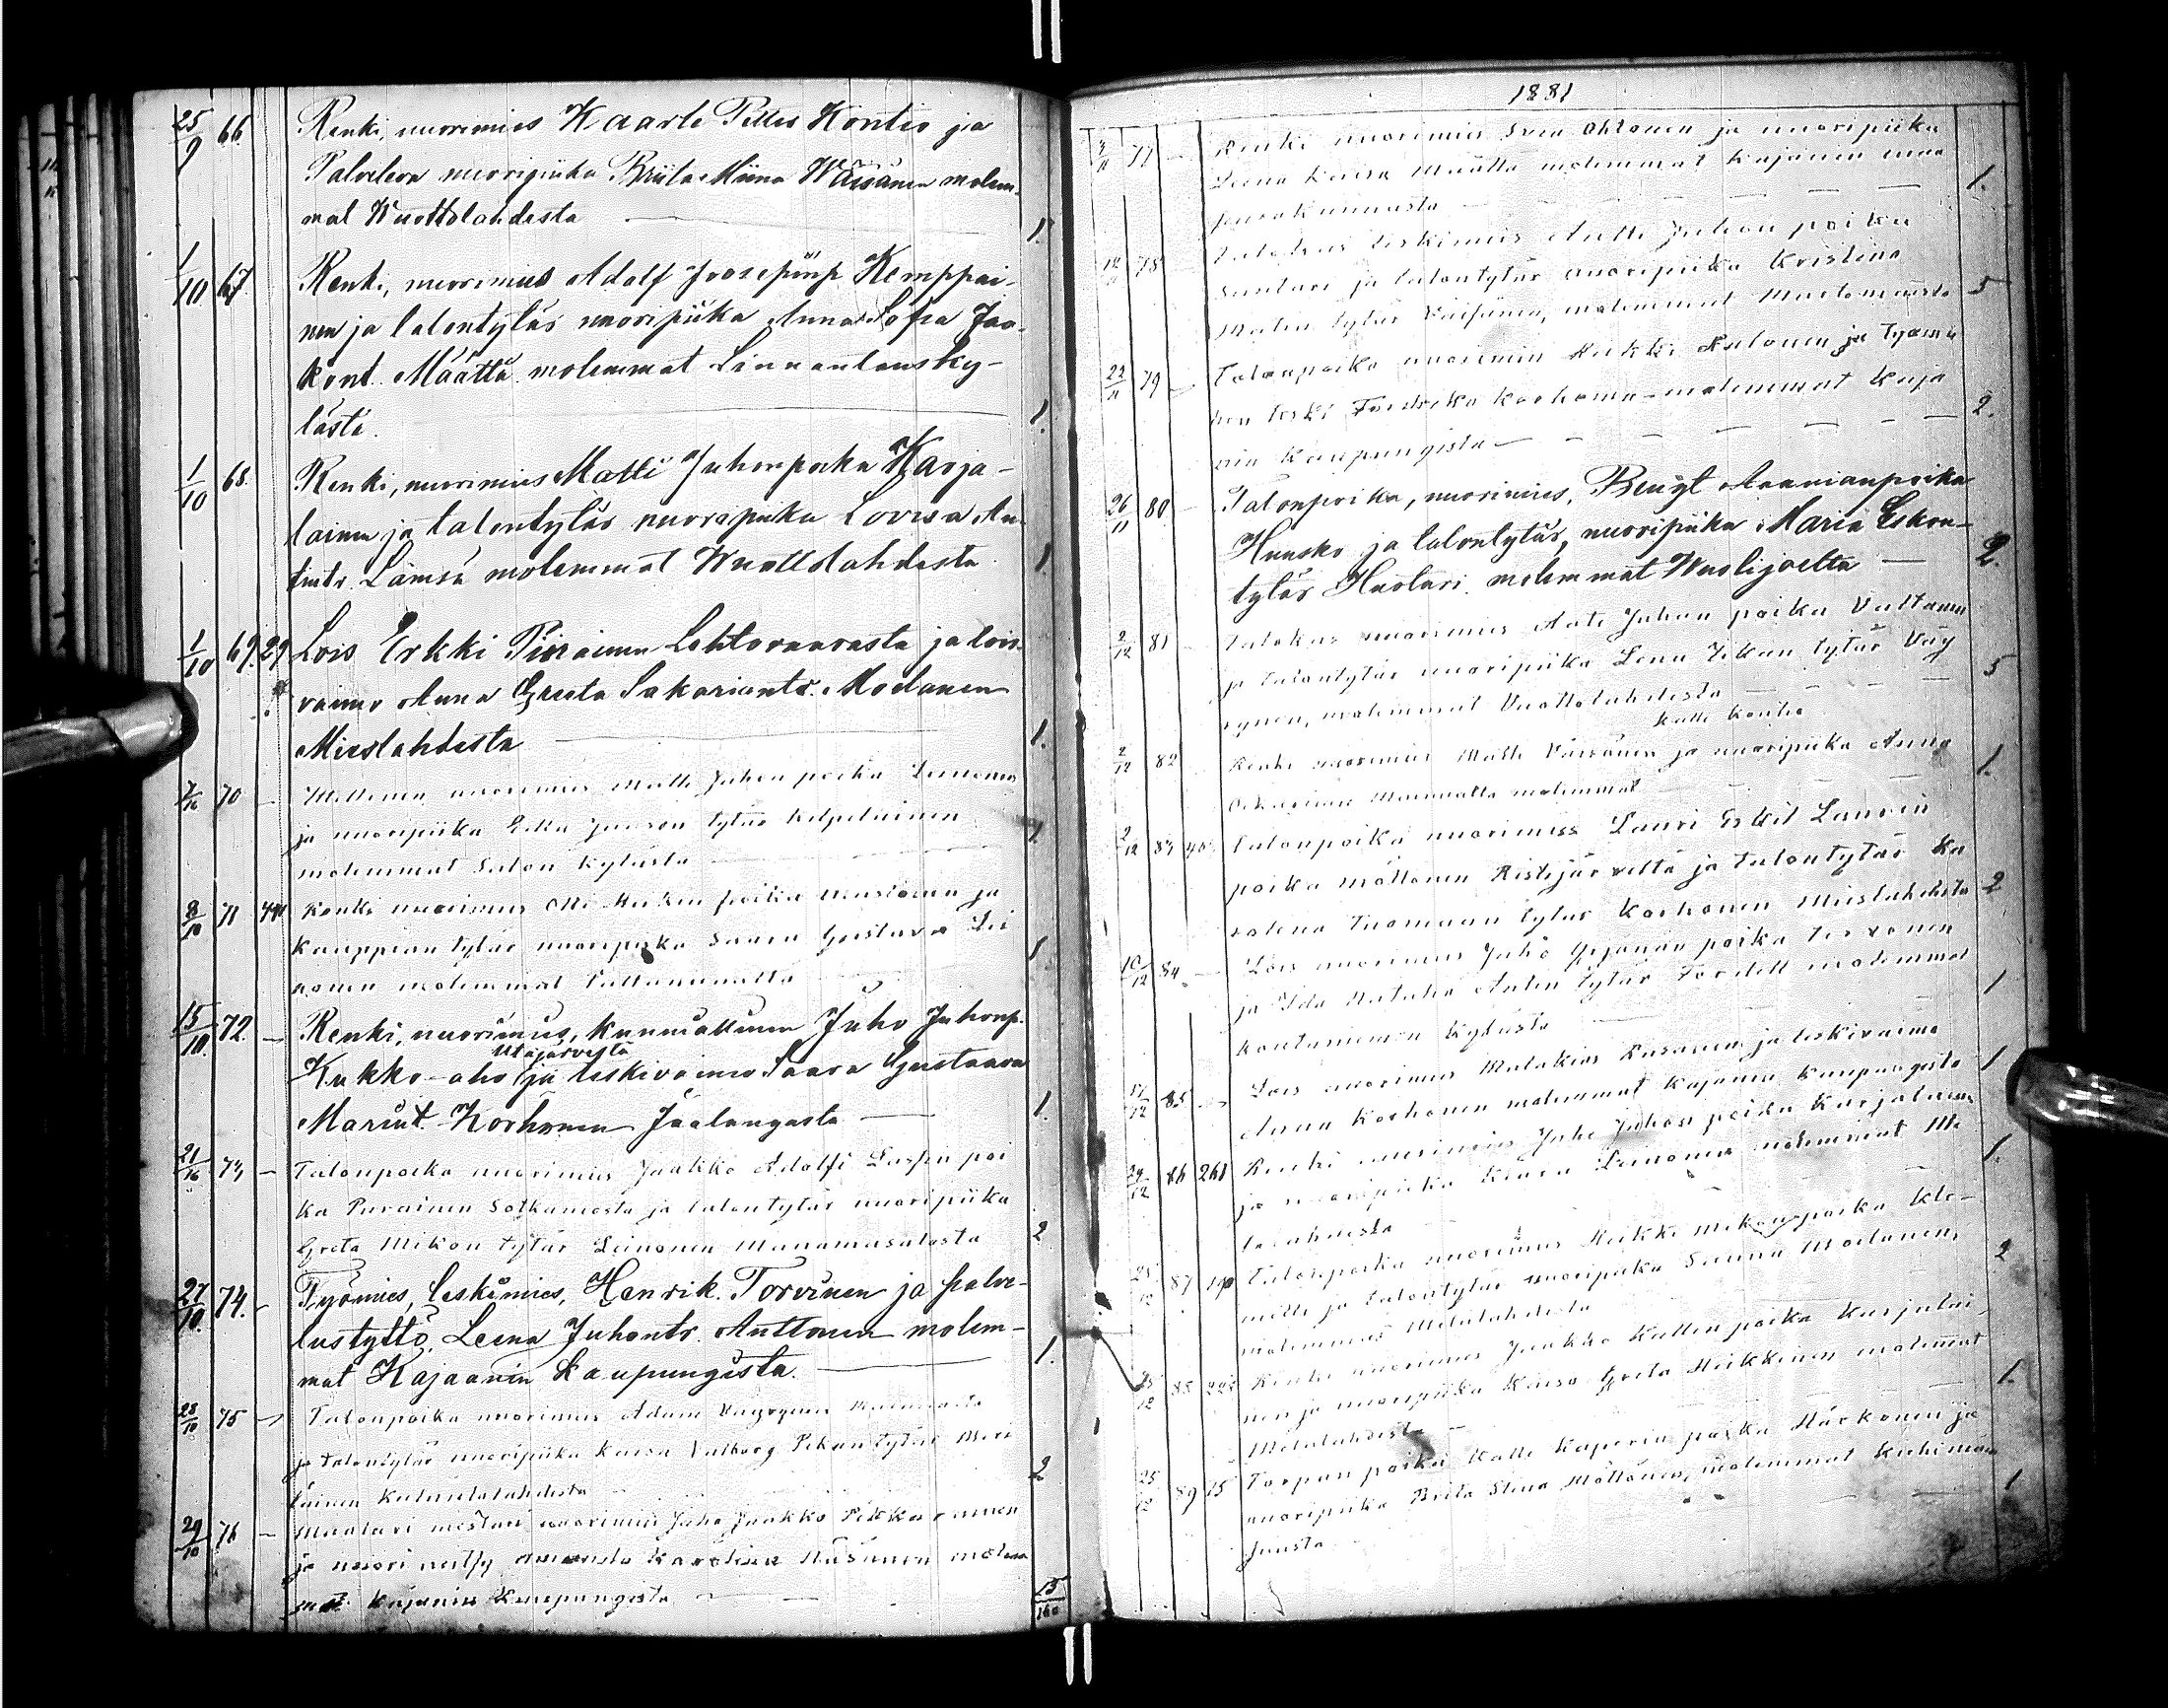 25/9 66 Renki, nuorimies Kaarle Pilles Kontio ja
Palveleva nuoripiika Briita Miina Wäisänen molem-
mat Wuottolahdesta — 1.
1/10 67 Renki, nuorimies Adolf Joosepinp. Kemppai-
nen ja talontytär nuoripiika Anna Sofia Jaa-
kont. Määttä molemmat Linnantausky-
lästä. 1.
1/10 68. Renki, nuorimies Matti Juhonpoika Karja-
lainen ja talontytär nuoripiika Lovisa An-
tintr. Lämsä molemmat Wuottolahdesta 1
1/10 69. 29 Lois Erkki Piirainen Lehtovaarasta ja lois-
vaimo Anna Greeta Sakariantr. Moilanen
Mieslahdesta — 1.
7/10 70 — nuorimies Matti Juhon poika Leinonen
ja nuoripiika Juuson tytär Kilpeläinen
molemmat Salon kylästä 1
8/10 71 Renki nuorimies Olli Heikin poika Mustonen ja
Kauppian tytär nuoripiika Saara Gustava Lei
nonen molemmat Paltaniemeltä 1
15/10. 72. — Renki, nuorimies, Juho Juhonp.
Utajärvestä
Kukko-aho ja leskivaimo Saara Gustaava
Mariat. Korhonen Jaalangasta — 1.
21/10 73 — Talonpoika nuorimies Jaakko Adolfi Laspin poi
ka Piirainen Sotkamosta ja talontytär nuoripiika
Greta Mikon tytär Leinonen Manamasalosta 2
27/10. 74. — Työmies, leskimies, Henrik Torvinen ja palve-
lustyttö, Leena Juhontr. Anttonen molem-
mat Kajaanin kaupungista. — 1.
28/10 75 — Talonpoika nuorimies Adam Väyrynen
ja talontytär nuoripiika Kaisa Valborg Pekan tytär Meri
läinen 2
29/10 76 — Maalari mestari nuorimies Juho Jaakko Pikkarainen
ja nuori neitsy Amanda Karolina Häsänen molem
mat Kajanin Kaupungista — 15/160
1881
77 — Renki nuorimies Sven Ahtonen ja nuoripiika
Leena Kaisa Määttä molemmat Kajanin maa
seurakunnasta — 1.
12/11 78 Talokas leskimies Antti Juhon poika
ja talontytär nuoripiika Kristina
Matin tytär Väisänen, molemmat 5
22/11 79 — Talonpoika nuorimies Heikki ja työmie
hen leski Fredrika Korhonen molemmat Kaja
nin kaupungista — 2.
26/11 80 — Talonpoika, nuorimies, Bengt Aaanianpoika
Hunsko ja talontytär, nuoripiika Maria Eskon-
tytär Huotari molemmat Wuolijoelta — 2.
2/12 81 — Talokas nuorimies Anti Juhon poika Valtanen
ja talontytär nuoripiika Lena Pekan tytär Väy
rynen, molemmat Vuottolahdesta 5
Kalle Kontio
2/12 82 Renki nuorimies Matti Väisänen ja nuoripiika Anna
molemmat 1.
2/12 83 40 talonpoika nuorimies Lauri Eskil Laurin
poika Möttönen Ristijärveltä ja talontytär Ka
tarina Tuomaan tytär Korhonen Mieslahdesta 2
10/12 84 — Lois nuorimies Juho Yrjänän poika Tervonen
ja Ida Antin tytär Tordell molemmat
Kontumäen kylästä 1
17/12 85 — Lois nuorimies Malakias Rusanen ja leskivaimo
Anna Korhonen molemmat Kajanin kaupungista 1
24/12 86 261 Renki nuorimies Juho Juhon poika Karjalainen
ja nuoripiika Leinonen molemmat Me
1.
25/12 87 Talonpoika nuorimies Heikki Mikonpoika Kle-
metti ja talontytär nuoripiika Sanna Moilanen,
molemmat Melalahdesta 2
25/12 88 Renki nuorimies Jaakko Kallen poika Karjalai
nen ja nuoripiika Kaisa Greta Heikkinen molemmat
Melalahdesta 1.
25/12 89 15 Torpan poika Kalle Kaperin poika Härkönen ja
nuoripiika Brita Stina Möttönen, molemmat
1